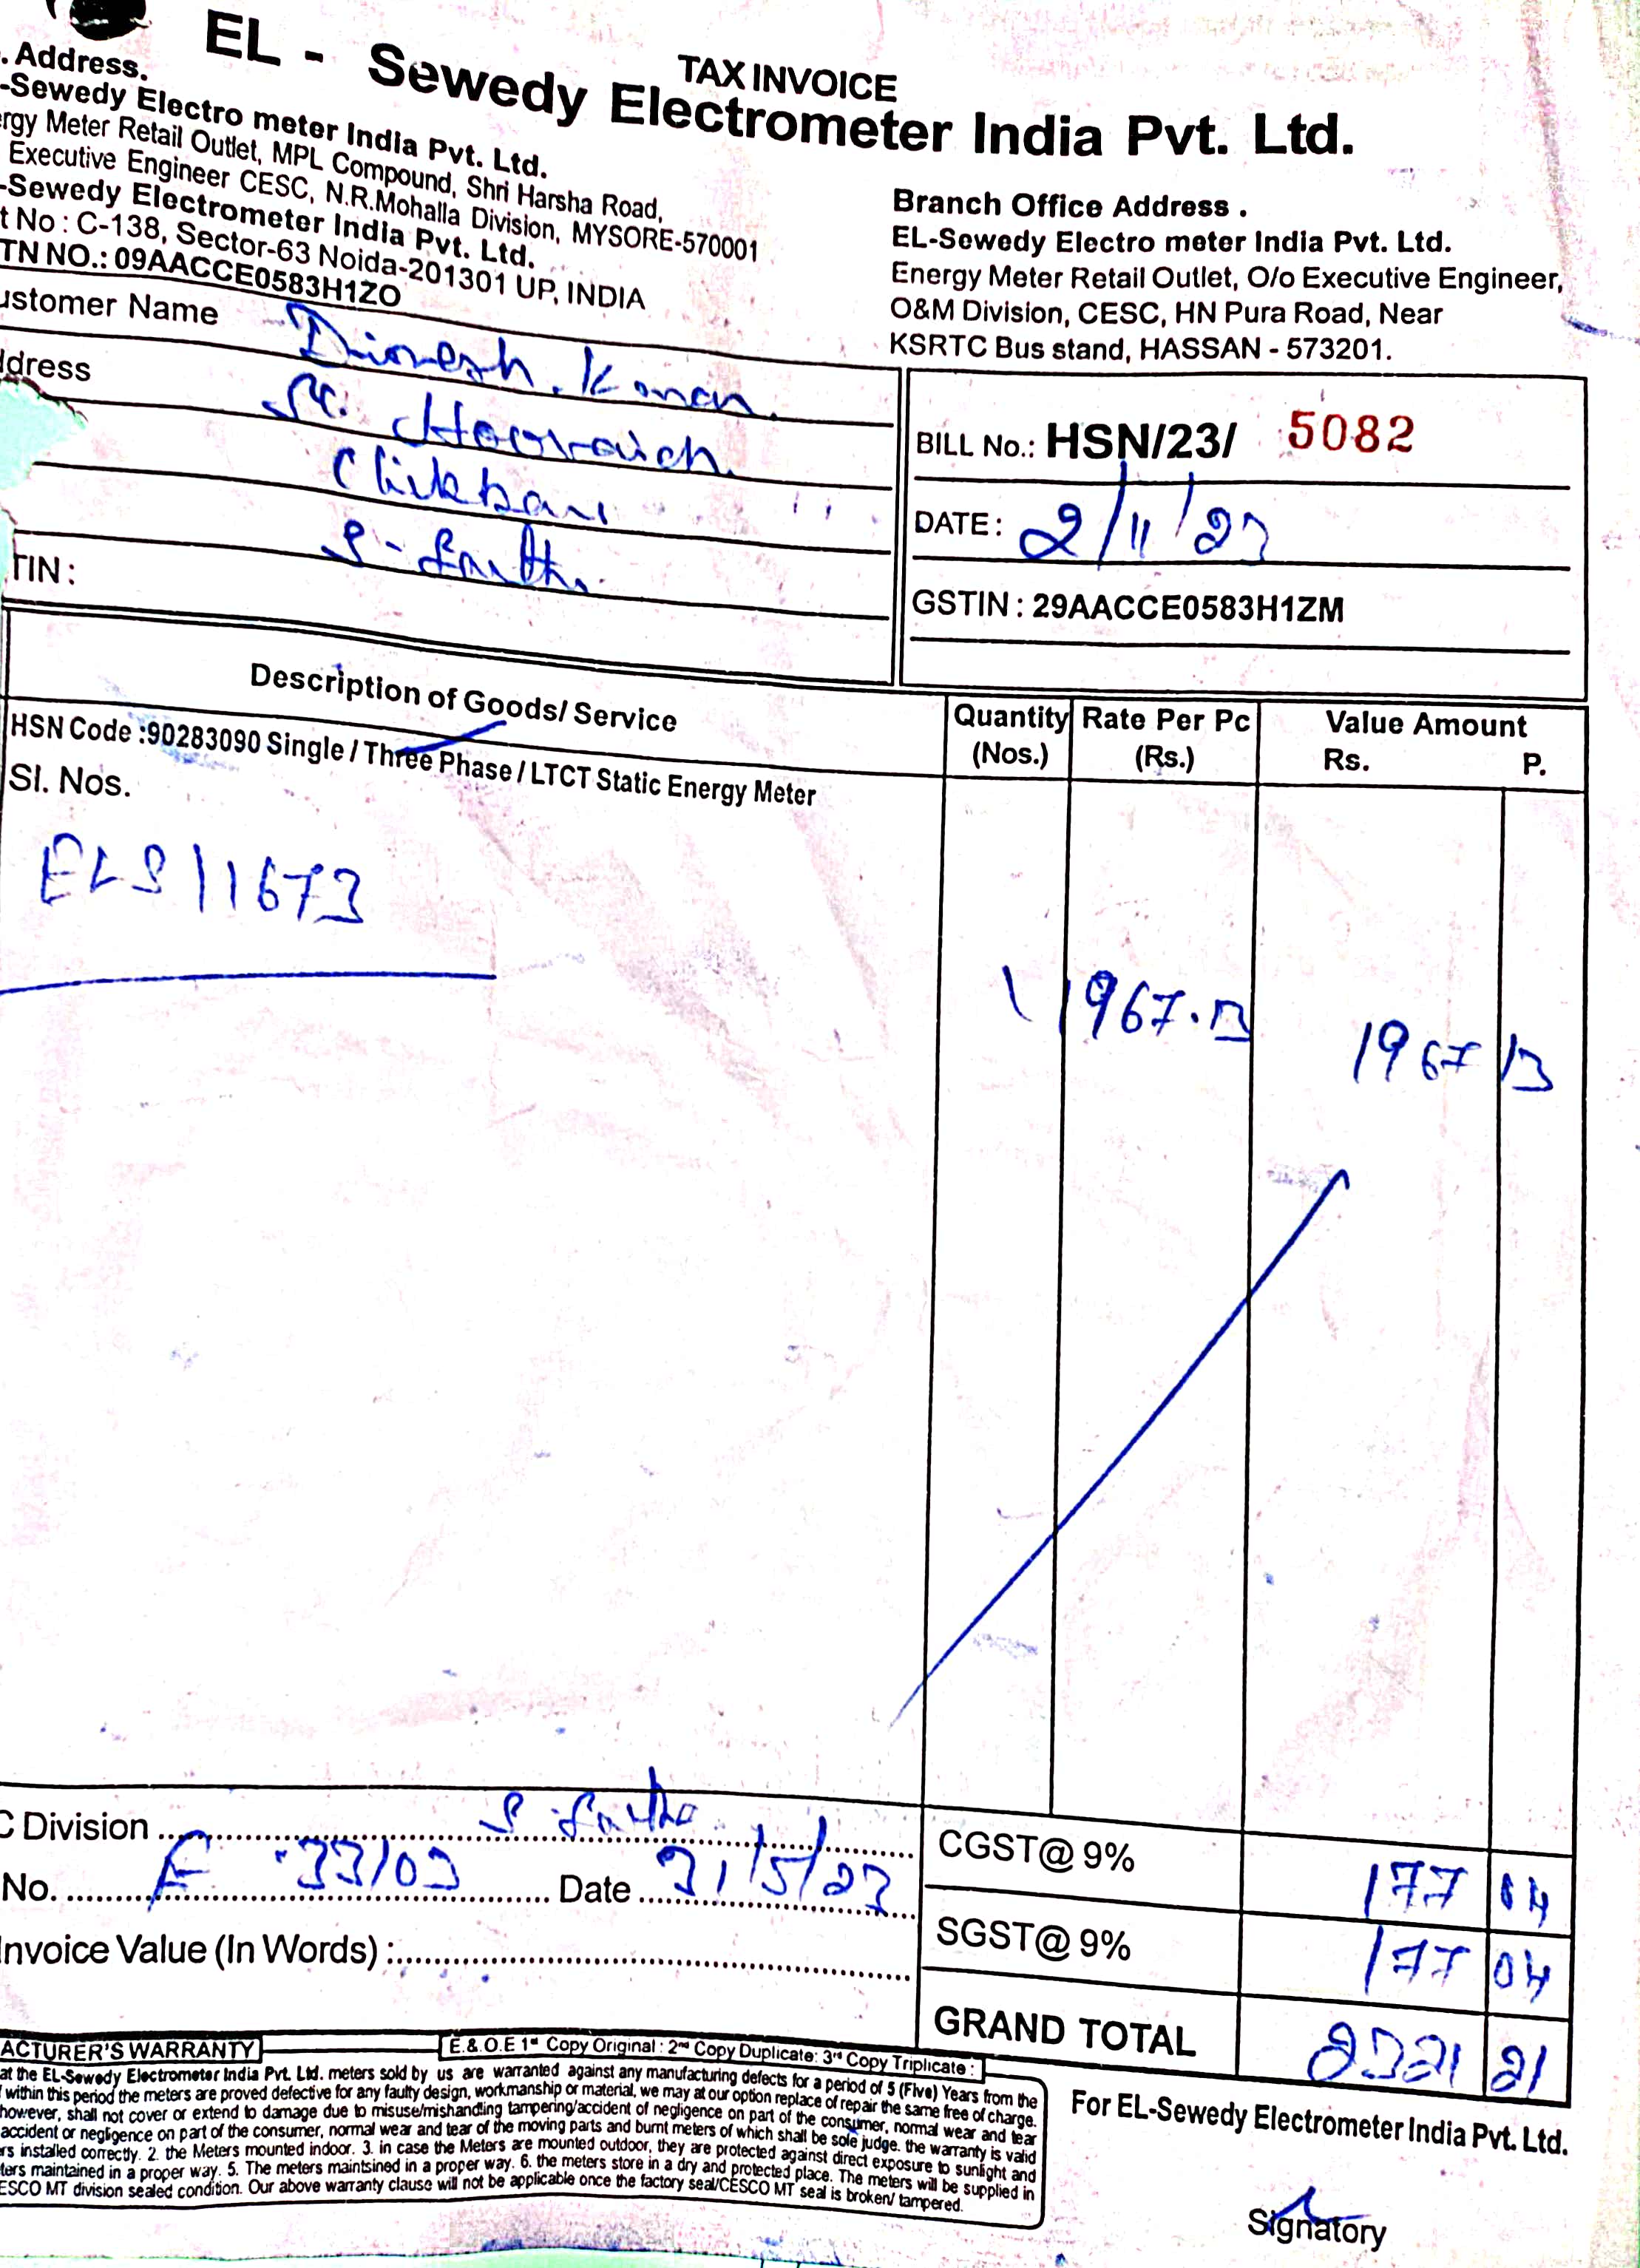 TAX INVOICE
EL - Sewedy Electrometer India Pvt. Ltd.
. Address.
-Sewedy Electro meter India Pvt. Ltd.
rgy Meter Retail Outlet, MPL Compound, Shri Harsha Road,
Executive Engineer CESC, N.R.Mohalla Division, MYSORE-570001
-Sewedy Electrometer India Pvt. Ltd.
t No : C-138, Sector-63 Noida-201301 UP, INDIA
TN NO.: 09AACCE0583H1ZO
Branch Office Address .
EL-Sewedy Electro meter India Pvt. Ltd.
Energy Meter Retail Outlet, O/o Executive Engineer,
O&M Division, CESC, HN Pura Road, Near
KSRTC Bus stand, HASSAN - 573201.
ustomer Name Dinesh. Kumar.
ddress
TIN :
BILL No.: HSN/23/ 5082
DATE : 2/11/23
GSTIN : 29AACCE0583H1ZM
Description of Goods/ Service
Quantity (Nos.)
Rate Per Pc (Rs.)
Value Amount
Rs. P.
HSN Code :90283090 Single / Three Phase / LTCT Static Energy Meter
Sl. Nos.
ELS11673
1 1967.13 1967 13
C Division
No. 33/03 Date 31/5/23
Invoice Value (In Words) :
CGST@ 9% 177 04
SGST@ 9% 177 04
GRAND TOTAL 2321 21
ACTURER'S WARRANTY
E.& O.E 1st Copy Original : 2nd Copy Duplicate: 3rd Copy Triplicate :
at the EL-Sewedy Electrometer India Pvt. Ltd. meters sold by us are warranted against any manufacturing defects for a period of 5 (Five) Years from the
within this period the meters are proved defective for any faulty design, workmanship or material, we may at our option replace of repair the same free of charge.
however, shall not cover or extend to damage due to misuse/mishandling tampering/accident of negligence on part of the consumer, normal wear and tear
accident or negligence on part of the consumer, normal wear and tear of the moving parts and burnt meters of which shall be sole judge. the warranty is valid
rs installed correctly. 2. the Meters mounted indoor. 3. in case the Meters are mounted outdoor, they are protected against direct exposure to sunlight and
ters maintained in a proper way. 5. The meters maintsined in a proper way. 6. the meters store in a dry and protected place. The meters will be supplied in
ESCO MT division sealed condition. Our above warranty clause will not be applicable once the factory seal/CESCO MT seal is broken/ tampered.
For EL-Sewedy Electrometer India Pvt. Ltd.
Signatory